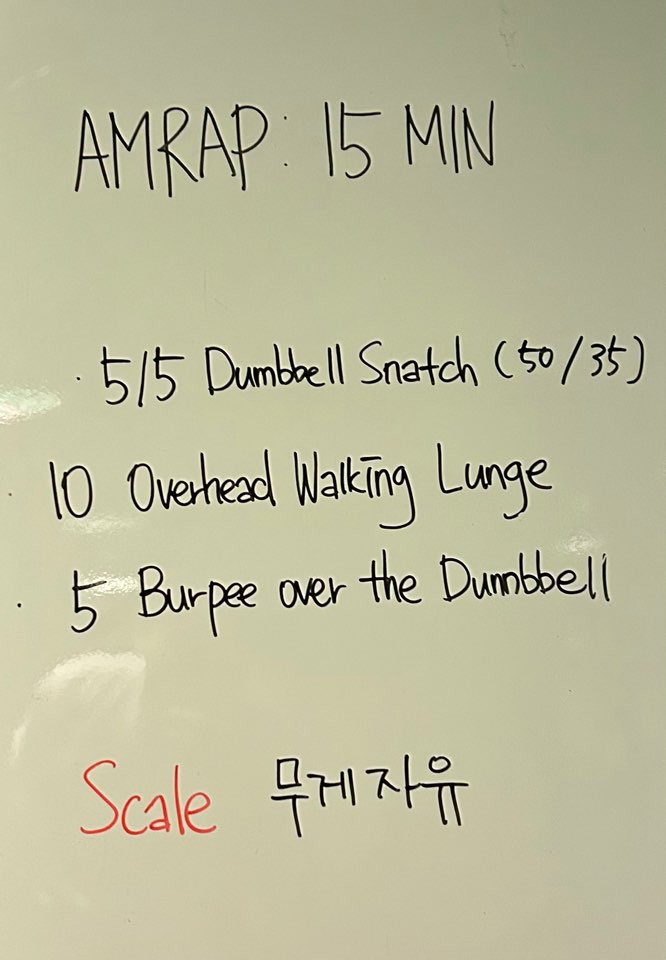 AMRAP: 15 MIN
· 5/5 Dumbbell Snatch (50/35)
· 10 Overhead Walking Lunge
· 5 Burpee over the Dumbbell
Scale 무게자유